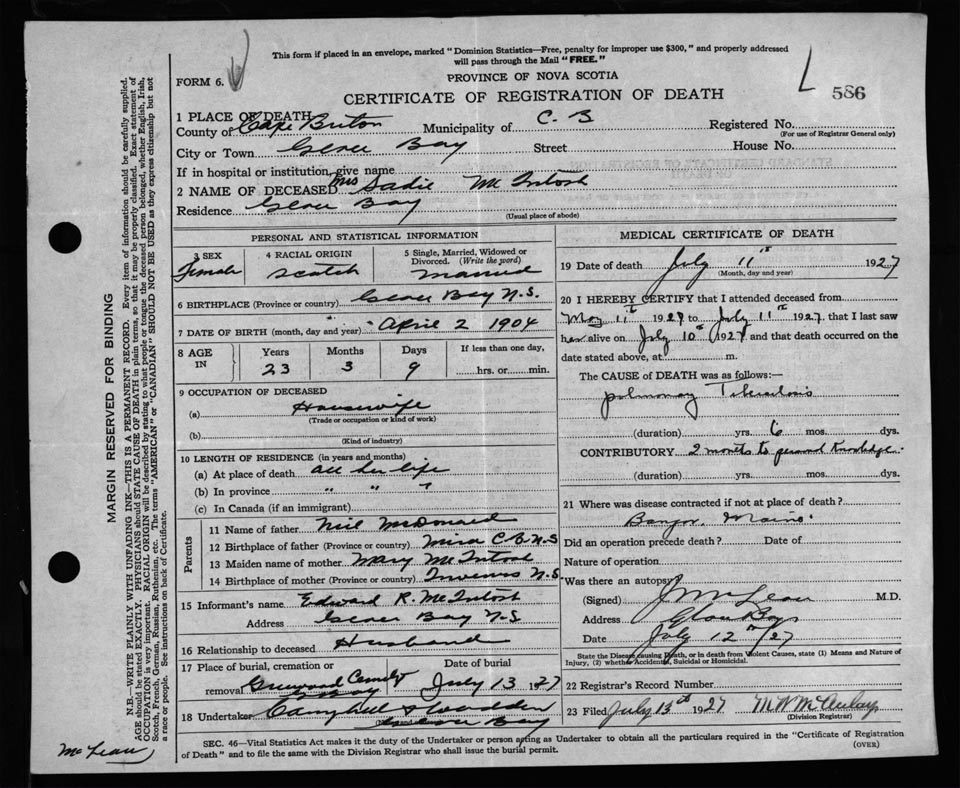 This form if placed in an envelope, marked "Dominion Statistics—Free, penalty for improper use $300," and properly addressed
will pass through the Mail "FREE."
FORM 6.
PROVINCE OF NOVA SCOTIA
CERTIFICATE OF REGISTRATION OF DEATH
L
586
1 PLACE OF DEATH
County of Cape Breton Municipality of C. B Registered No.
(For use of Registrar General only)
City or Town Glace Bay Street House No.
If in hospital or institution, give name
2 NAME OF DECEASED Mrs Sadie McIntosh
Residence Glace Bay
(Usual place of abode)
PERSONAL AND STATISTICAL INFORMATION
3 SEX 4 RACIAL ORIGIN 5 Single, Married, Widowed or
Divorced. (Write the word)
Female Scotch Married
6 BIRTHPLACE (Province or country) Glace Bay N.S.
7 DATE OF BIRTH (month, day and year) April 2 1904
8 AGE IN Years Months Days If less than one day,
23 3 9 hrs. or min.
9 OCCUPATION OF DECEASED
(a) Housewife
(Trade or occupation or kind of work)
(b)
(Kind of industry)
10 LENGTH OF RESIDENCE (in years and months)
(a) At place of death all her life
(b) In province " " "
(c) In Canada (if an immigrant)
Parents
11 Name of father Neil McDonald
12 Birthplace of father (Province or country) Mira C B N S
13 Maiden name of mother Mary McIntosh
14 Birthplace of mother (Province or country) Inverness N.S
15 Informant's name Edward R. McIntosh
Address Glace Bay N.S.
16 Relationship to deceased Husband
17 Place of burial, cremation or Date of burial
removal Greenwood Cemetery July 13 1927
18 Undertaker Campbell &
Glace Bay
MEDICAL CERTIFICATE OF DEATH
19 Date of death July 11th 1927
(Month, day and year)
20 I HEREBY CERTIFY that I attended deceased from
May 11th 1927 to July 11th 1927, that I last saw
her alive on July 10th 1927 and that death occurred on the
date stated above, at m.
The CAUSE of DEATH was as follows:—
pulmonary Tuberculosis
(duration) yrs. 6 mos. dys.
CONTRIBUTORY 2 months to personal knowledge.
(duration) yrs. mos. dys.
21 Where was disease contracted if not at place of death?
Bangor, Maine
Did an operation precede death? Date of
Nature of operation
Was there an autopsy
(Signed) J McLean M.D.
Address Glace Bay
Date July 12th/27
State the Disease causing Death, or in death from Violent Causes, state (1) Means and Nature of
Injury, (2) whether Accidental, Suicidal or Homicidal.
22 Registrar's Record Number
23 Filed July 13th 1927 M McAulay
(Division Registrar)
SEC. 46—Vital Statistics Act makes it the duty of the Undertaker or person acting as Undertaker to obtain all the particulars required in the "Certificate of Registration
of Death" and to file the same with the Division Registrar who shall issue the burial permit.
(OVER)
MARGIN RESERVED FOR BINDING
N.B.—WRITE PLAINLY WITH UNFADING INK—THIS IS A PERMANENT RECORD. Every item of information should be carefully supplied.
AGE should be stated EXACTLY. PHYSICIANS should STATE CAUSE OF DEATH in plain terms, so that it may be properly classified. Exact statement of
OCCUPATION is very important. RACIAL ORIGIN will be described by stating to what people or tongue the deceased person belonged, whether English, Irish,
Scotch, French, German, Russian, Ruthenian, etc. The terms "AMERICAN" or "CANADIAN" SHOULD NOT BE USED as they express citizenship but not
a race or people. See instructions on back of Certificate.
McLean